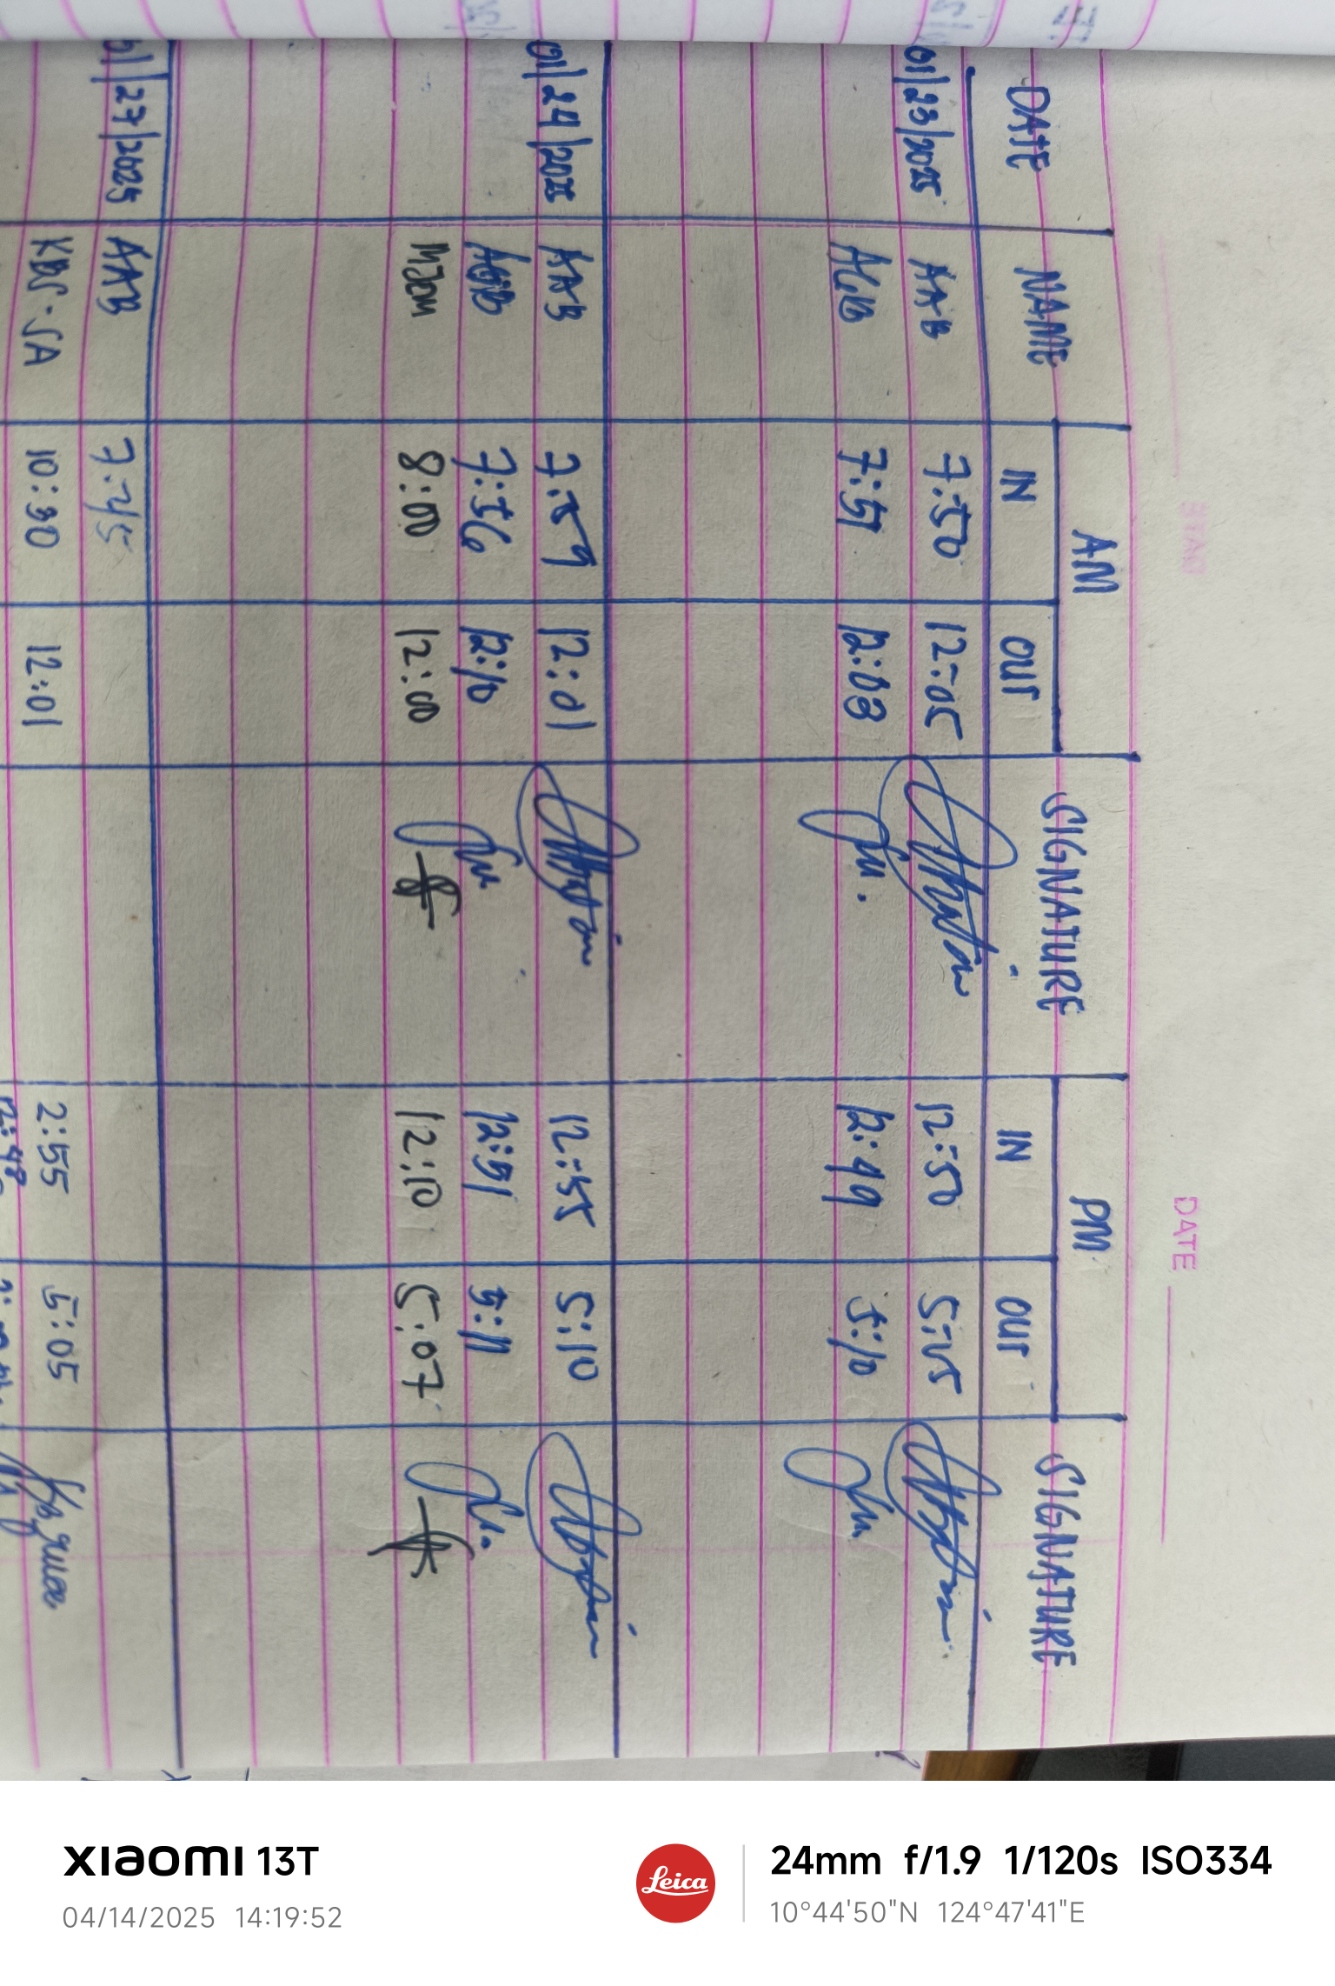 DATE
DATE NAME AM SIGNATURE PM SIGNATURE
IN OUT IN OUT
01/23/2025 AAB 7:50 12:05 12:50 5:15
AGB 7:57 12:03 12:49 5:10
01/24/2025 AAB 7:59 12:01 12:55 5:10
AGB 7:56 12:10 12:51 5:11
MJOM 8:00 12:00 12:10 5:07
01/27/2025 AAB 7:45
KBS-SA 10:30 12:01 2:55 5:05
12:48
XIAOMI 13T
04/14/2025 14:19:52
Leica
24mm f/1.9 1/120s ISO334
10°44'50"N 124°47'41"E